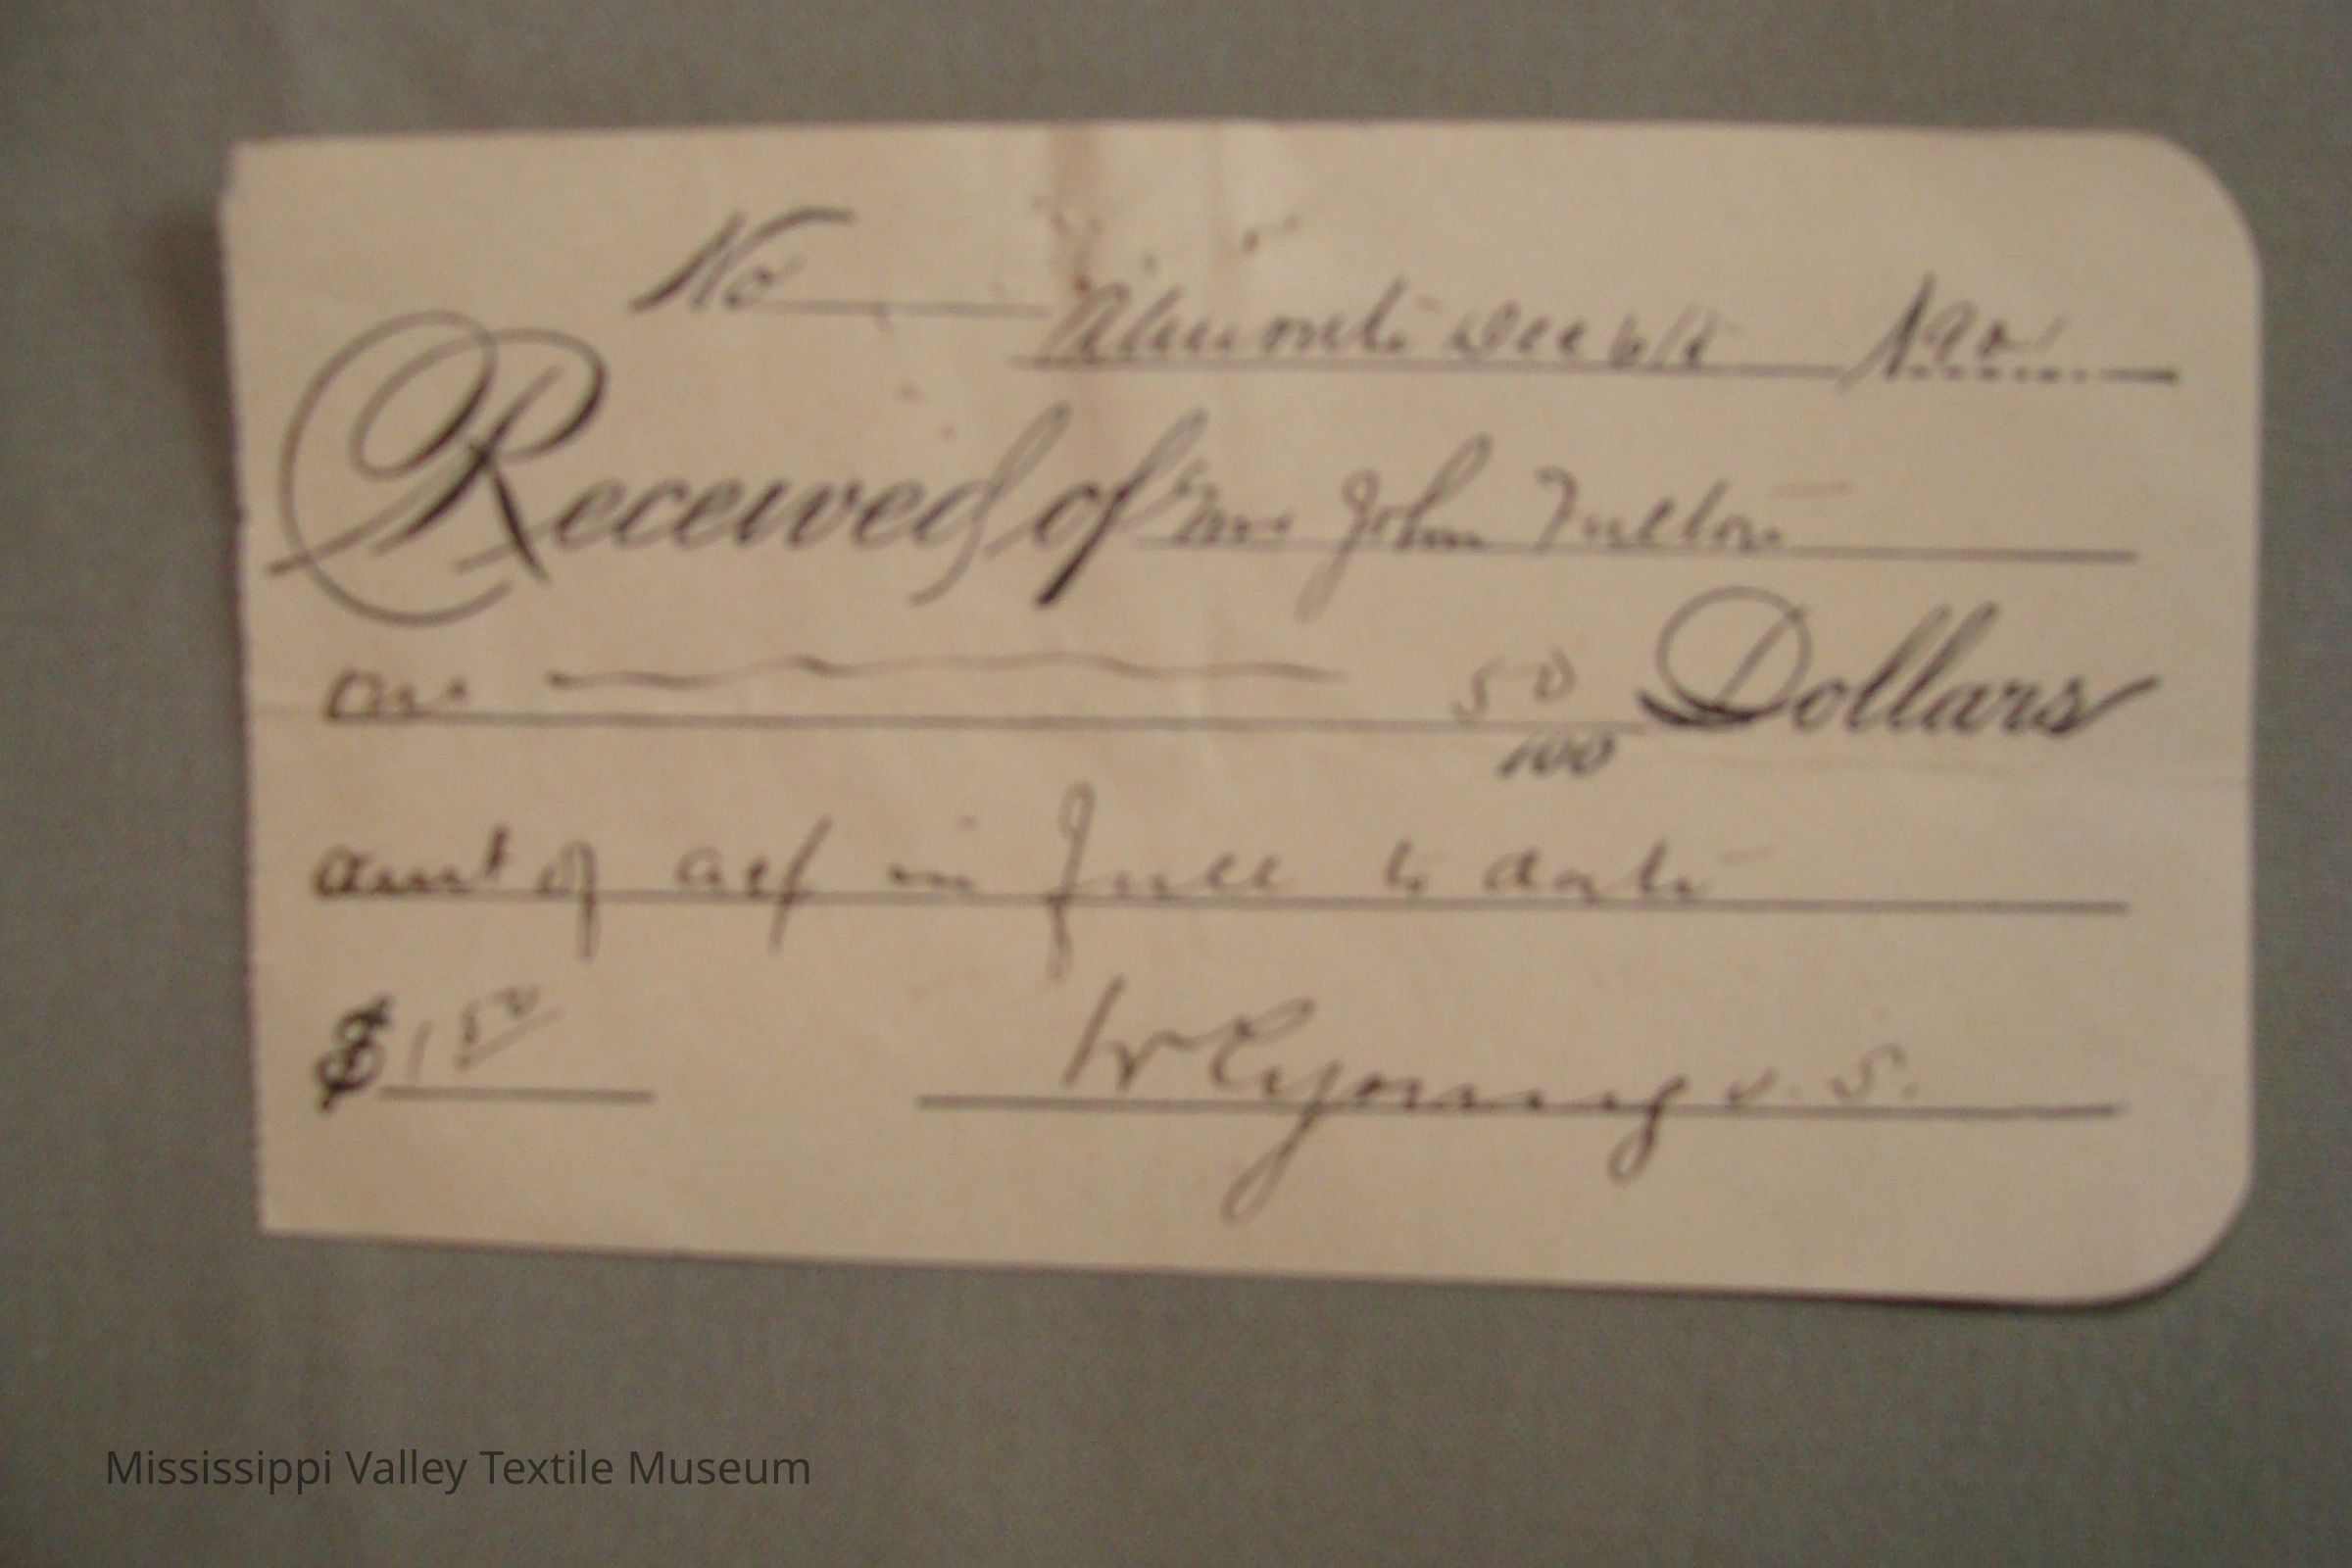 No
Almonte Dec 6th 190
Received of Mr John Fulton
One 50/100 Dollars
amt of a/c in full to date
$1 50
W Young V. S.
Mississippi Valley Textile Museum